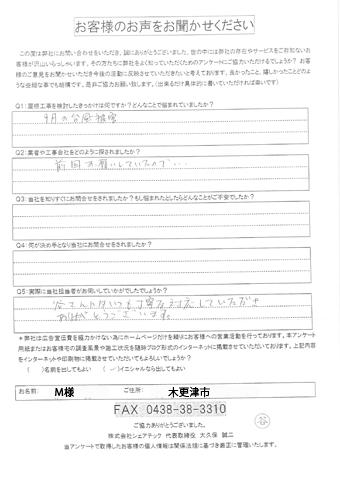 お客様のお声をお聞かせください
この度は弊社にお問い合わせをいただき、誠にありがとうございました。世の中には弊社の存在やサービスをご存知ないお
客様が沢山いらっしゃいます。その方たちに弊社をよく知っていただくためのアンケートにご協力いただけるでしょうか? お客
様のご意見をお聞かせいただき今後の活動に反映させていただきたいと考えております。良かったこと、嬉しかったことどのよ
うな些細な事でも結構です。是非ご協力お願い致します。(出来るだけ具体的に書いていただければ幸いです)
Q1:屋根工事を検討したきっかけは何ですか?どんなことで悩まれていましたか?
9月の台風被害
Q2:業者や工事会社をどのように探されましたか?
前回お願いしていたので…
Q3:当社を知りすぐにお問合せをされましたか?もし悩まれたとしたらどんなことがご不安でしたか?
Q4:何が決め手となり当社にお問合せをされましたか?
Q5:実際に当社担当者がお伺いしていかがでしたでしょうか?
谷さんにはいつも丁寧な対応していただき
ありがとうございます。
*弊社は広告宣伝費を極力かけない為にホームページだけを頼りにお客様への営業活動を行っております。本アンケート
用紙またはお客様宅の調査風景や施工状況を随時ブログ形式のインターネットに掲載させていただいております。上記内容
をインターネットや印刷物に掲載させていただいてもよろしいでしょうか?
( )名前を出してもよい ( ✓ )イニシャルなら出してもよい
お名前: M様 ご住所: 木更津市
FAX 0438-38-3310
ご協力ありがとうございました。
谷
株式会社シェアテック 代表取締役 大久保 誠二
当アンケートで取得したお客様の個人情報は関係法規に基づき厳正に管理いたします。